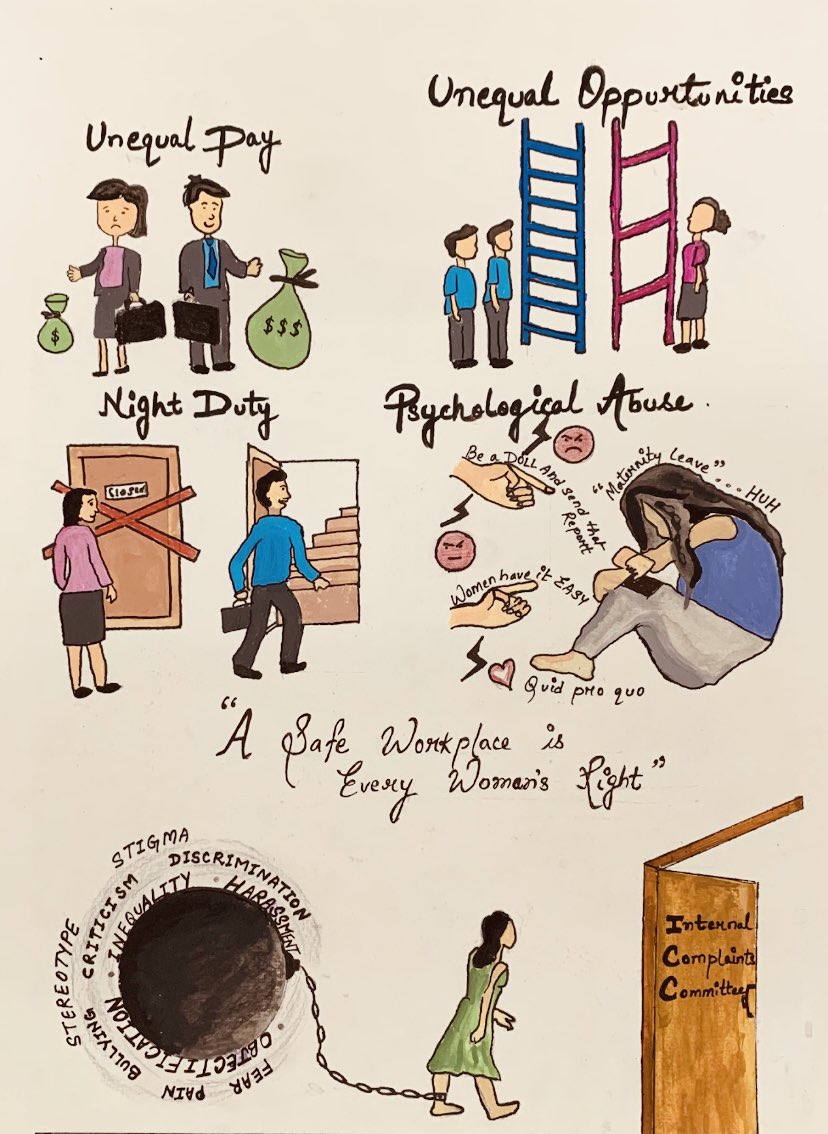 Unequal Pay
Unequal Oppurtunities
$
$$$
Night Duty
Psychological Abuse.
CLOSED
Be a DOLL And send that
Report
"Maternity leave"...HUH
Women have it EASY
Quid pro quo
"A Safe Workplace is
Every Woman's Right"
STIGMA
DISCRIMINATION
HARASSMENT
INEQUALITY
CRITICISM
STEREOTYPE
BULLYING
OBJECTIFICATION
PAIN
FEAR
Internal
Complaints
Committee